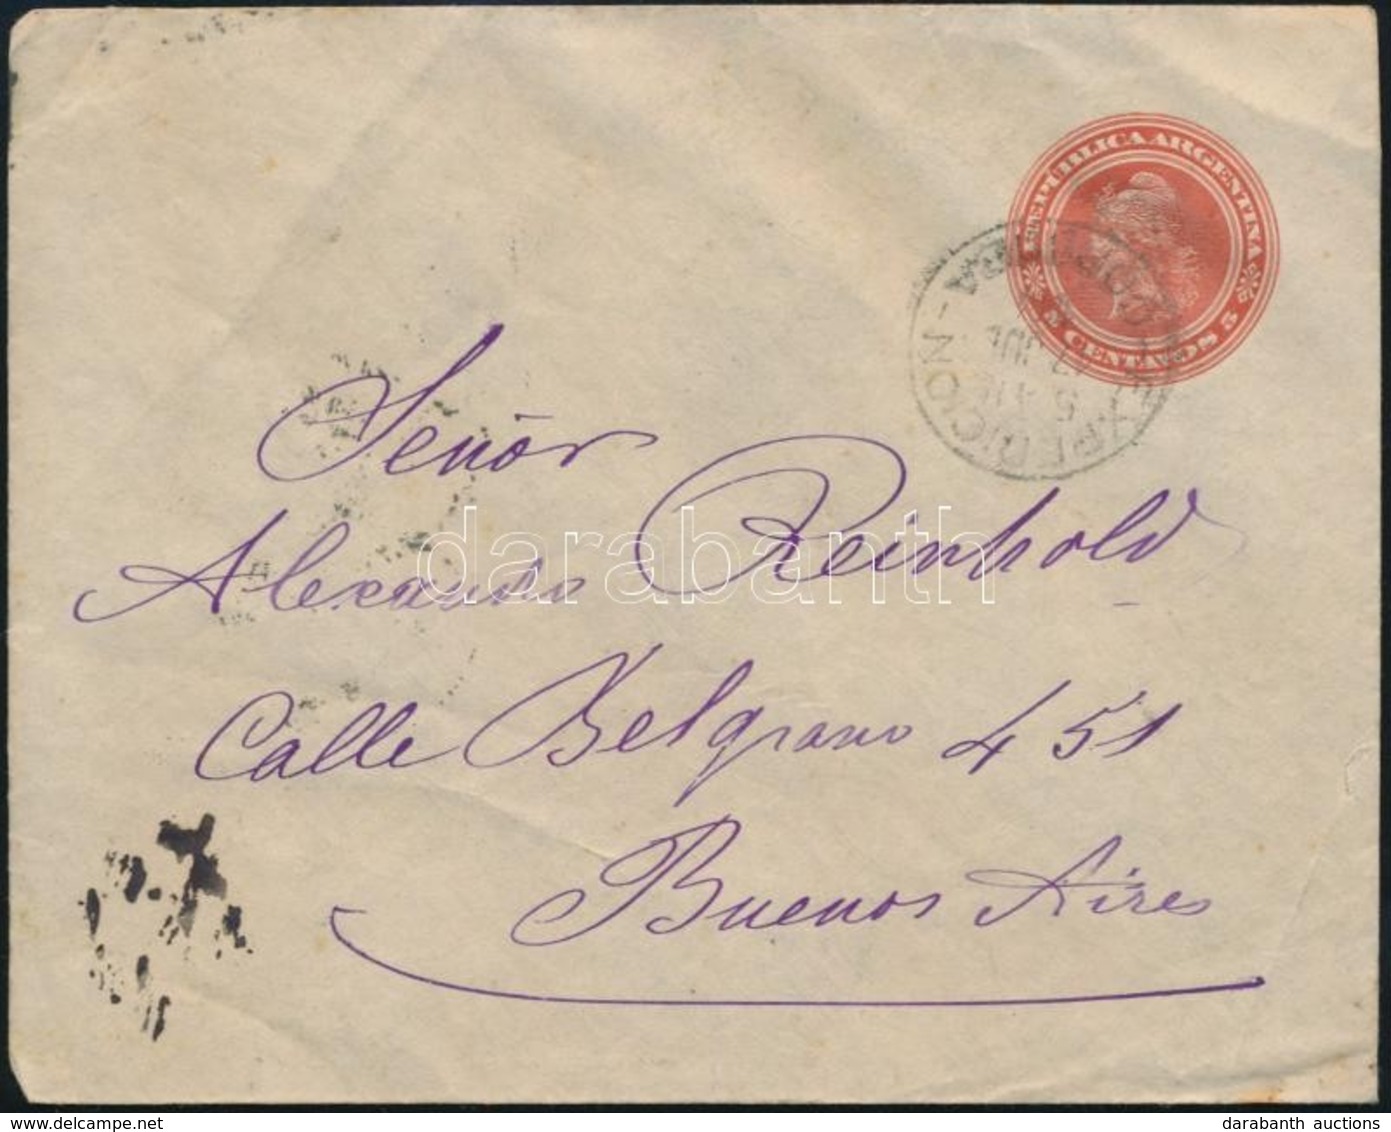 REPUBLICA ARGENTINA
5 CENTAVOS 5
EXPEDICION
JUL
5
Señor
Alexandro Reinhold
Calle Belgrano 451
Buenos Aires
darabanth
darabanth auctions